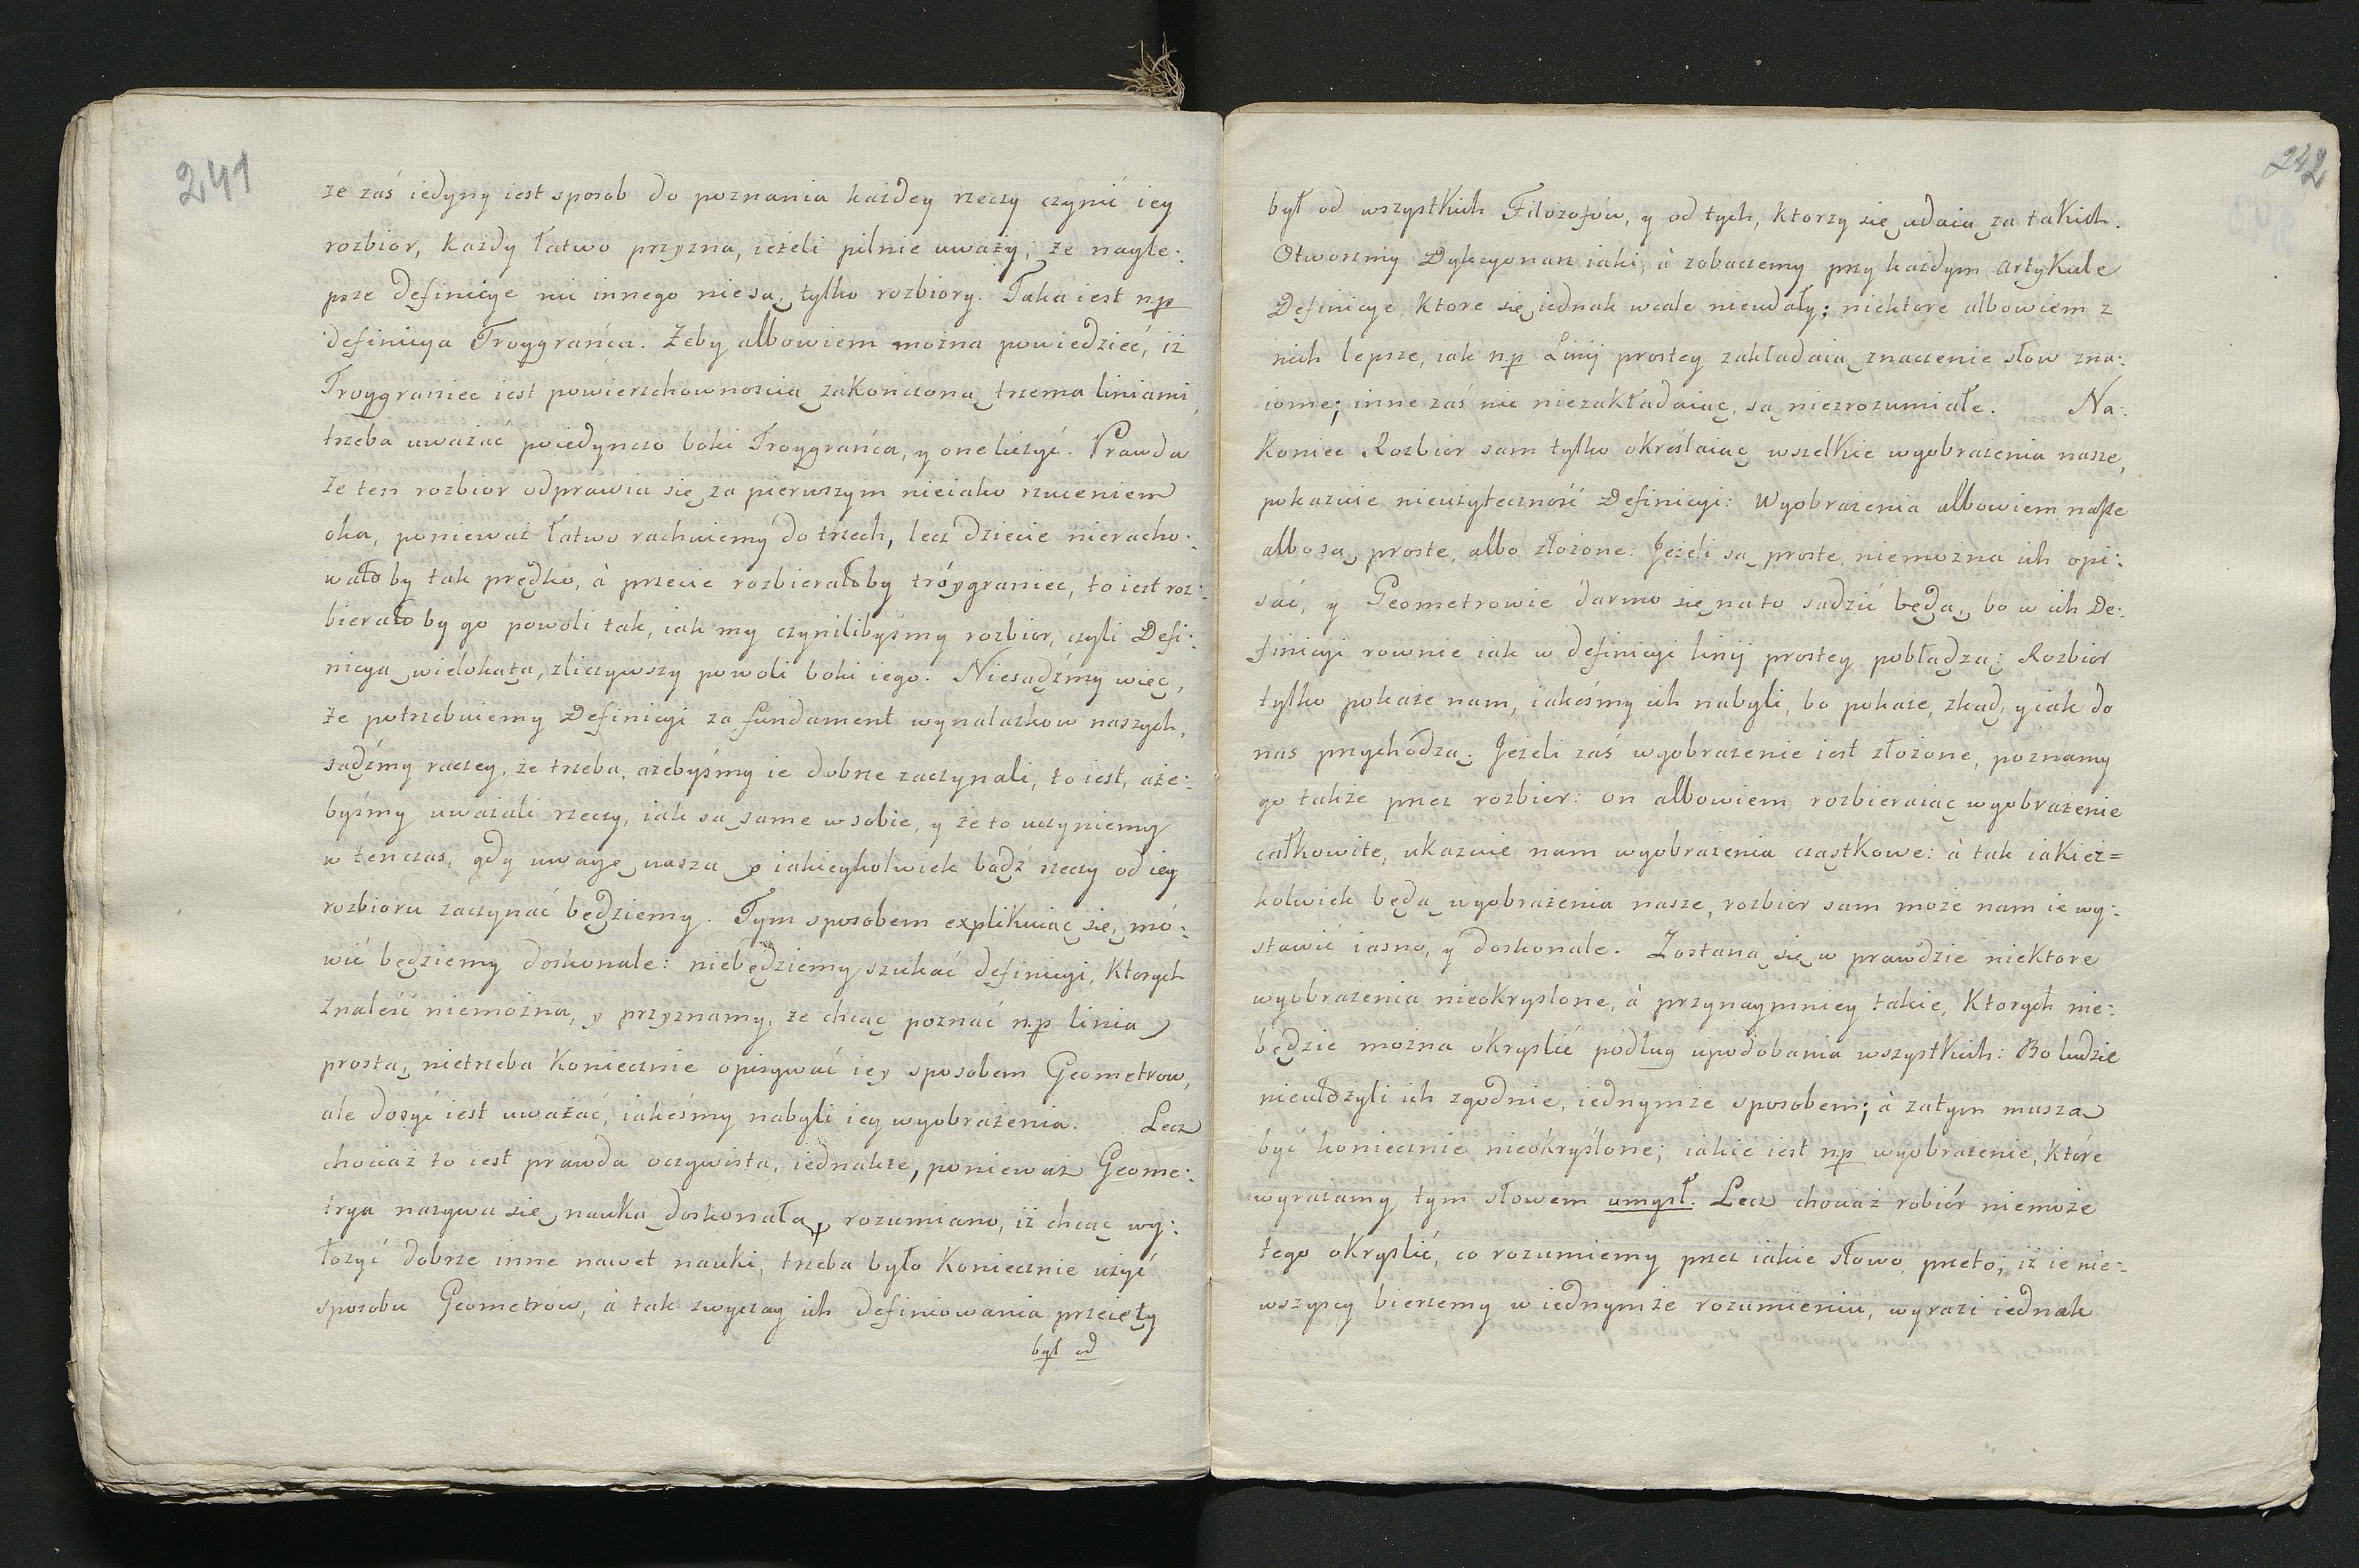 241
że zaś iedyny iest sposob do poznania każdey rzeczy czynić iey
rozbior, każdy łatwo przyzna, ieżeli pilnie uważy, że nayle:
psze Definicye nic innego nie są, tylko rozbiory. Taka iest n.p
definicya Troygrańca. Żeby albowiem można powiedzieć, iż
Troygraniec iest powierzchownoscią zakończoną trzema liniami,
trzeba uważać poiedynczo boki Troygrańca, y one liczyć. Prawda
że ten rozbior odprawia się za pierwszym nieiako rzuceniem
oka, ponieważ łatwo rachuiemy do trzech, lecz dziecie nieracho:
wałoby tak prędko, à przecie rozbierałoby tróygraniec, to iest roz:
bierałoby go powoli tak, iak my czynilibyśmy rozbior, czyli Defi:
nicyą wielokąta, zliczywszy powoli boki iego. Niesądźmy więc,
że potrzebuiemy Definicyi za fundament wynalazkow naszych,
sądźmy raczey, że trzeba, ażebyśmy ie dobrze zaczynali, to iest, aże:
byśmy uważali rzeczy, iak są same w sobie, y że to uczyniemy
w ten czas, gdy uwagę naszą o iakieykolwiek bądź rzeczy od iey
rozbioru zaczynać będziemy. Tym sposobem explikuiąc się, mó:
wić będziemy doskonale: niebędziemy szukać definicyi, Ktorych
znaleść niemożna, y przyznamy, że chcąc poznać n.p linią
prostą, nietrzeba Koniecznie opisywać iey sposobem Geometrow,
ale dosyć iest uważać, iakeśmy nabyli iey wyobrażenia. Lecz
chociaż to iest prawda oczywista, iednakże, ponieważ Geome:
trya nazywa się nauką doskonałą, rozumiano, iż chcąc wy:
łożyć dobrze inne nawet nauki, trzeba było Koniecznie użyć
sposobu Geometrów, à tak zwyczay ich definiowania przeięty
był od
242
był od wszystkich Filozofów, y od tych, Ktorzy się udaią za takich.
Otworzmy Dykcyonarz iaki, à zobaczemy przy każdym Artykule
Definicye, Ktore się iednak wcale nieudały; niektore albowiem z
nich lepsze, iak n.p Linij prostey zakładaią znaczenie słow zna:
iome; inne zaś nic niezakładaiąc, są niezrozumiałe. Na:
koniec Rozbior sam tylko określaiąc wszelkie wyobrażenia nasze,
pokazuie nieużyteczność Definicyi: Wyobrażenia albowiem nasze
albo są proste, albo złożone: Jeżeli są proste, niemożna ich opi:
sać, y Geometrowie darmo się na to sadzić będą, bo w ich De:
finicyi rownie iak w definicyi linij prostey pobłądzą: Rozbior
tylko pokaże nam, iakeśmy ich nabyli, bo pokaże, zkąd, y iak do
nas przychodzą. Jeżeli zaś wyobrażenie iest złożone, poznamy
go także przez rozbier: on albowiem rozbieraiąc wyobrażenie
całkowite, ukazuie nam wyobrażenia cząstkowe: à tak iakież=
kolwiek będą wyobrażenia nasze, rozbior sam może nam ie wy:
stawić iasno, y doskonale. Zostaną się w prawdzie nieKtore
wyobrażenia nieokryslone, à przynaymniey takie, Ktorych nie:
będzie można okryslić podług upodobania wszystkich: Bo ludzie
nieułożyli ich zgodnie, iednymże sposobem; à zatym muszą
być koniecznie nieokryślone; iakie iest n.p wyobrażenie, które
wyrażamy tym słowem umysł. Lecz chociaż robiór niemoże
tego okryslić, co rozumiemy przez iakie słowo, przeto, iż ie nie:
wszyscy bierzemy w iednymże rozumieniu, wyrazi iednak